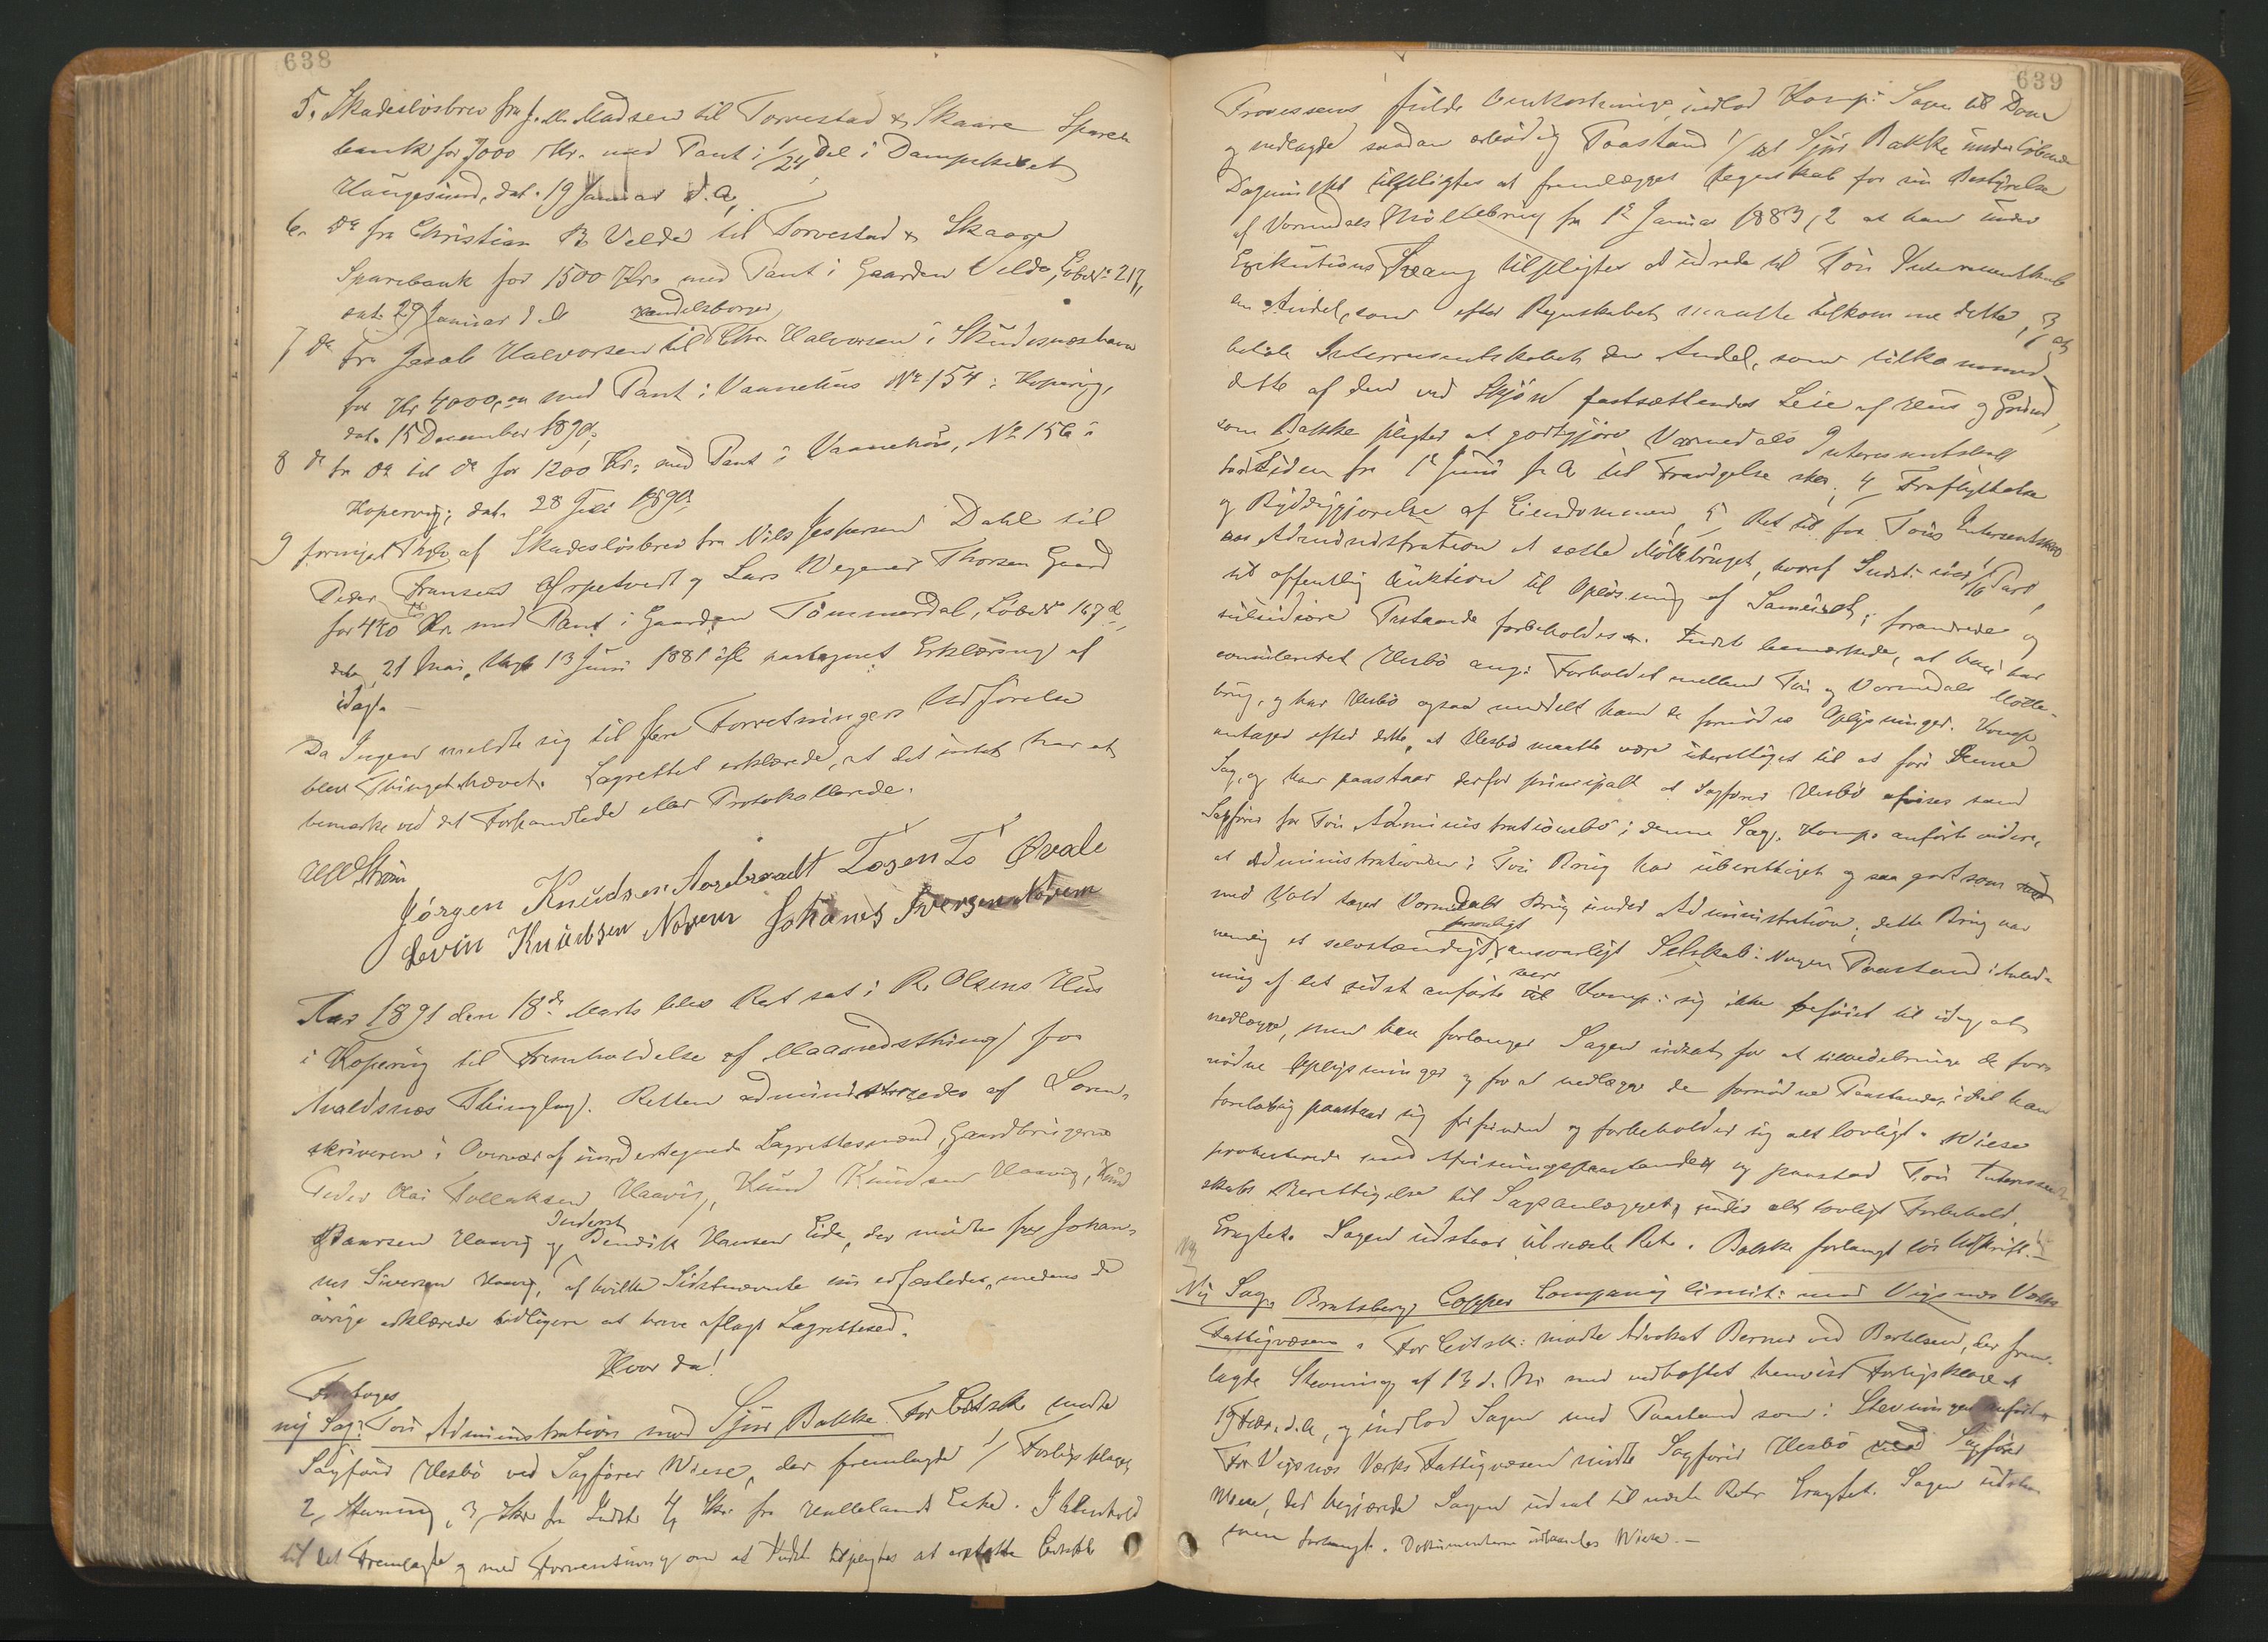 638
5. Skadesløsbrev fra J. M. Madsen til Torvestad & Skaare Spare
bank for 7000 Kr. med Pant i 1/24 Del i Dampskibet
Haugesund, dat. 19 Januar d. A.
6. do fra Christian B. Velde til Torvestad & Skaare
Sparebank for 1500 Kr. med Pant i Gaarden Velde, Løbe No 217,
dat. 29 Januar d. A.
handelsborger
7 do fra Jacob Halvorsen til Chr. Halvorsen i Skudesneshavn
for Kr. 4000,00 med Pant i Vaanehus No 154 i Kopervig,
dat. 15 December 1890.
8 do fra do til do for 1200 Kr. med Pant i Vaanehus, No 156 i
Kopervig, dat. 28 Juli 1890.
9 fornyet Thgl. af Skadesløsbrev fra Nils Jespersen Dahl til
Peder Fransen Ørpetvedt og Lars Wegner Thorsen Gaard
for 440 Kr. med Pant i Gaarden Tømmerdal, Løbe No 167 d,
dat. 21 Mai, thgl. 13 Juni 1881 ifl. paategnet Erklæring af
idag. —
Da Ingen meldte sig til flere Forretningers Udførelse
blev Thinget hævet. Lagrettet erklærede, at det intet har at
bemærke ved det Forhandlede eller Protokollerede.
Jørgen Knudsen Aarebrædt Tosen To Øvale
Levin Knudsen Norem Johanes Iversen Norem
Aar 1891 den 18de Marts blev Ret sat i R. Olsens Hus
i Kopervig til Fremholdelse af Maanedsthing for
Avaldsnes Thinglag. Retten administreredes af Soren-
skriveren i Overvær af undertegnede Lagrettesmænd, Gaardbrugerne
Peder Olai Tollaksen Haavig, Knud Knudsen Haavig, Knud
Inderst
Baarsen Haavig og Bendik Hansen Eide, der mødte for Johan-
nes Siversen Haavig, af hvilke Sidstnævnte nu edfæstedes, medens de
øvrige erklærede tidligere at have aflagt Lagrettesed.
Hvor da!
Foretoges
ny Sag: Tori Administration mod Sjur Bakke. For Citsk. mødte
Sagfører Hesbø ved Sagfører Wiese, der fremlagde 1/ Forligsklage,
2, Stevning, 3/ Skr. fra Indst. 4/ Skr. fra Hallelands Enke. I Henhold
til det Fremlagte og med Formening om at Indst. tilpligtes at erstatte Citsk.
639
Processens fulde Omkostninger indlod Komp. Sagen til Dom
og nedlagde saadan ærbødig Paastand 1/ at Sjur Bakke under løbende
Dagmulkt tilpligtes at fremlægge Regnskab for sin Bestyrelse
af Vormedals Møllebrug fra 1e Januar 1883, 2 at han under
Exekutions Tvang tilpligtes at udrede til Tori Interessentskab
en Andel, som efter Regnskabet maatte tilkomme dette, 3/ at
betale Interessentskabet den Andel, som tilkommer
dette af den ved Skjøn fastsættendes Leie af Hus og Grund,
som Bakke pligter at godtgjøre Vormedals Interessentskab
for Tiden fra 1e Juni f. A. til Fravigelse sker, 4 Fraflyttelse
og Ryddiggjørelse af Eiendommen, 5 Ret til for Toris Interessentskab
Administration at sætte Møllebruget, hvoraf Indst. eier 1/16 Part,
til offentlig Auktion til Opløsning af Sameiet; forandrede og
subsidiære Paastande forbeholdes. Indst. bemærkede, at han har
konsulentet Hesbø ang. Forholdet mellem Tori og Vormedals Mølle-
brug, og har Hesbø ogsaa meddelt ham de fornødne Oplysninger. Komp.
antager efter dette, at Hesbø maatte være uberettiget til at føre denne
Sag, og han paastaar derfor principalt at Sagfører Hesbø afvises som
Sagfører for Tori Administrationsbo i denne Sag. Komp. anførte videre,
at Administrationen i Tori Brug har uberettiget og saa godt som
med Vold taget Vormedals Brug under Administration; dette Brug var
personligt
nemlig et selvstændigt, ansvarligt Selskab. Nogen Paastand i Anled-
ning af det sidst anførte ser Komp. sig ikke beføiet til idag at
nedlægge, men han forlanger Sagen udsat for at tilveiebringe de for-
nødne Oplysninger og for at nedlægge de fornødne Paastande, idet han
foreløbig paastaar sig frifunden og forbeholder sig alt lovligt. Wiese
protesterede mod Afvisningspaastanden og paastod Tori Interessent
skabs Berettigelse til Sagsanlægget, under alt lovligt Forbehold.
Eragtet. Sagen udstaar til næste Ret. Bakke forlangte løs Udskrift.
Ny Sag. Bratsberg Copper Company limit: mod Vigsnes Værks
Fattigvæsen. For Citsk. mødte Advokat Berner ved Bertelsen, der frem-
lagde Stevning af 13 d. M. med vedhæftet henvist Forligsklage af
19 Febr. d. A., og indlod Sagen med Paastand som i Stevningen anført.
For Vigsnes Værks Fattigvæsen mødte Sagfører Hesbø ved Sagfører
Wiese, der begjærede Sagen udsat til næste Ret. Eragtet. Sagen udstaar
som forlangt. Dokumenterne udlaantes Wiese. —